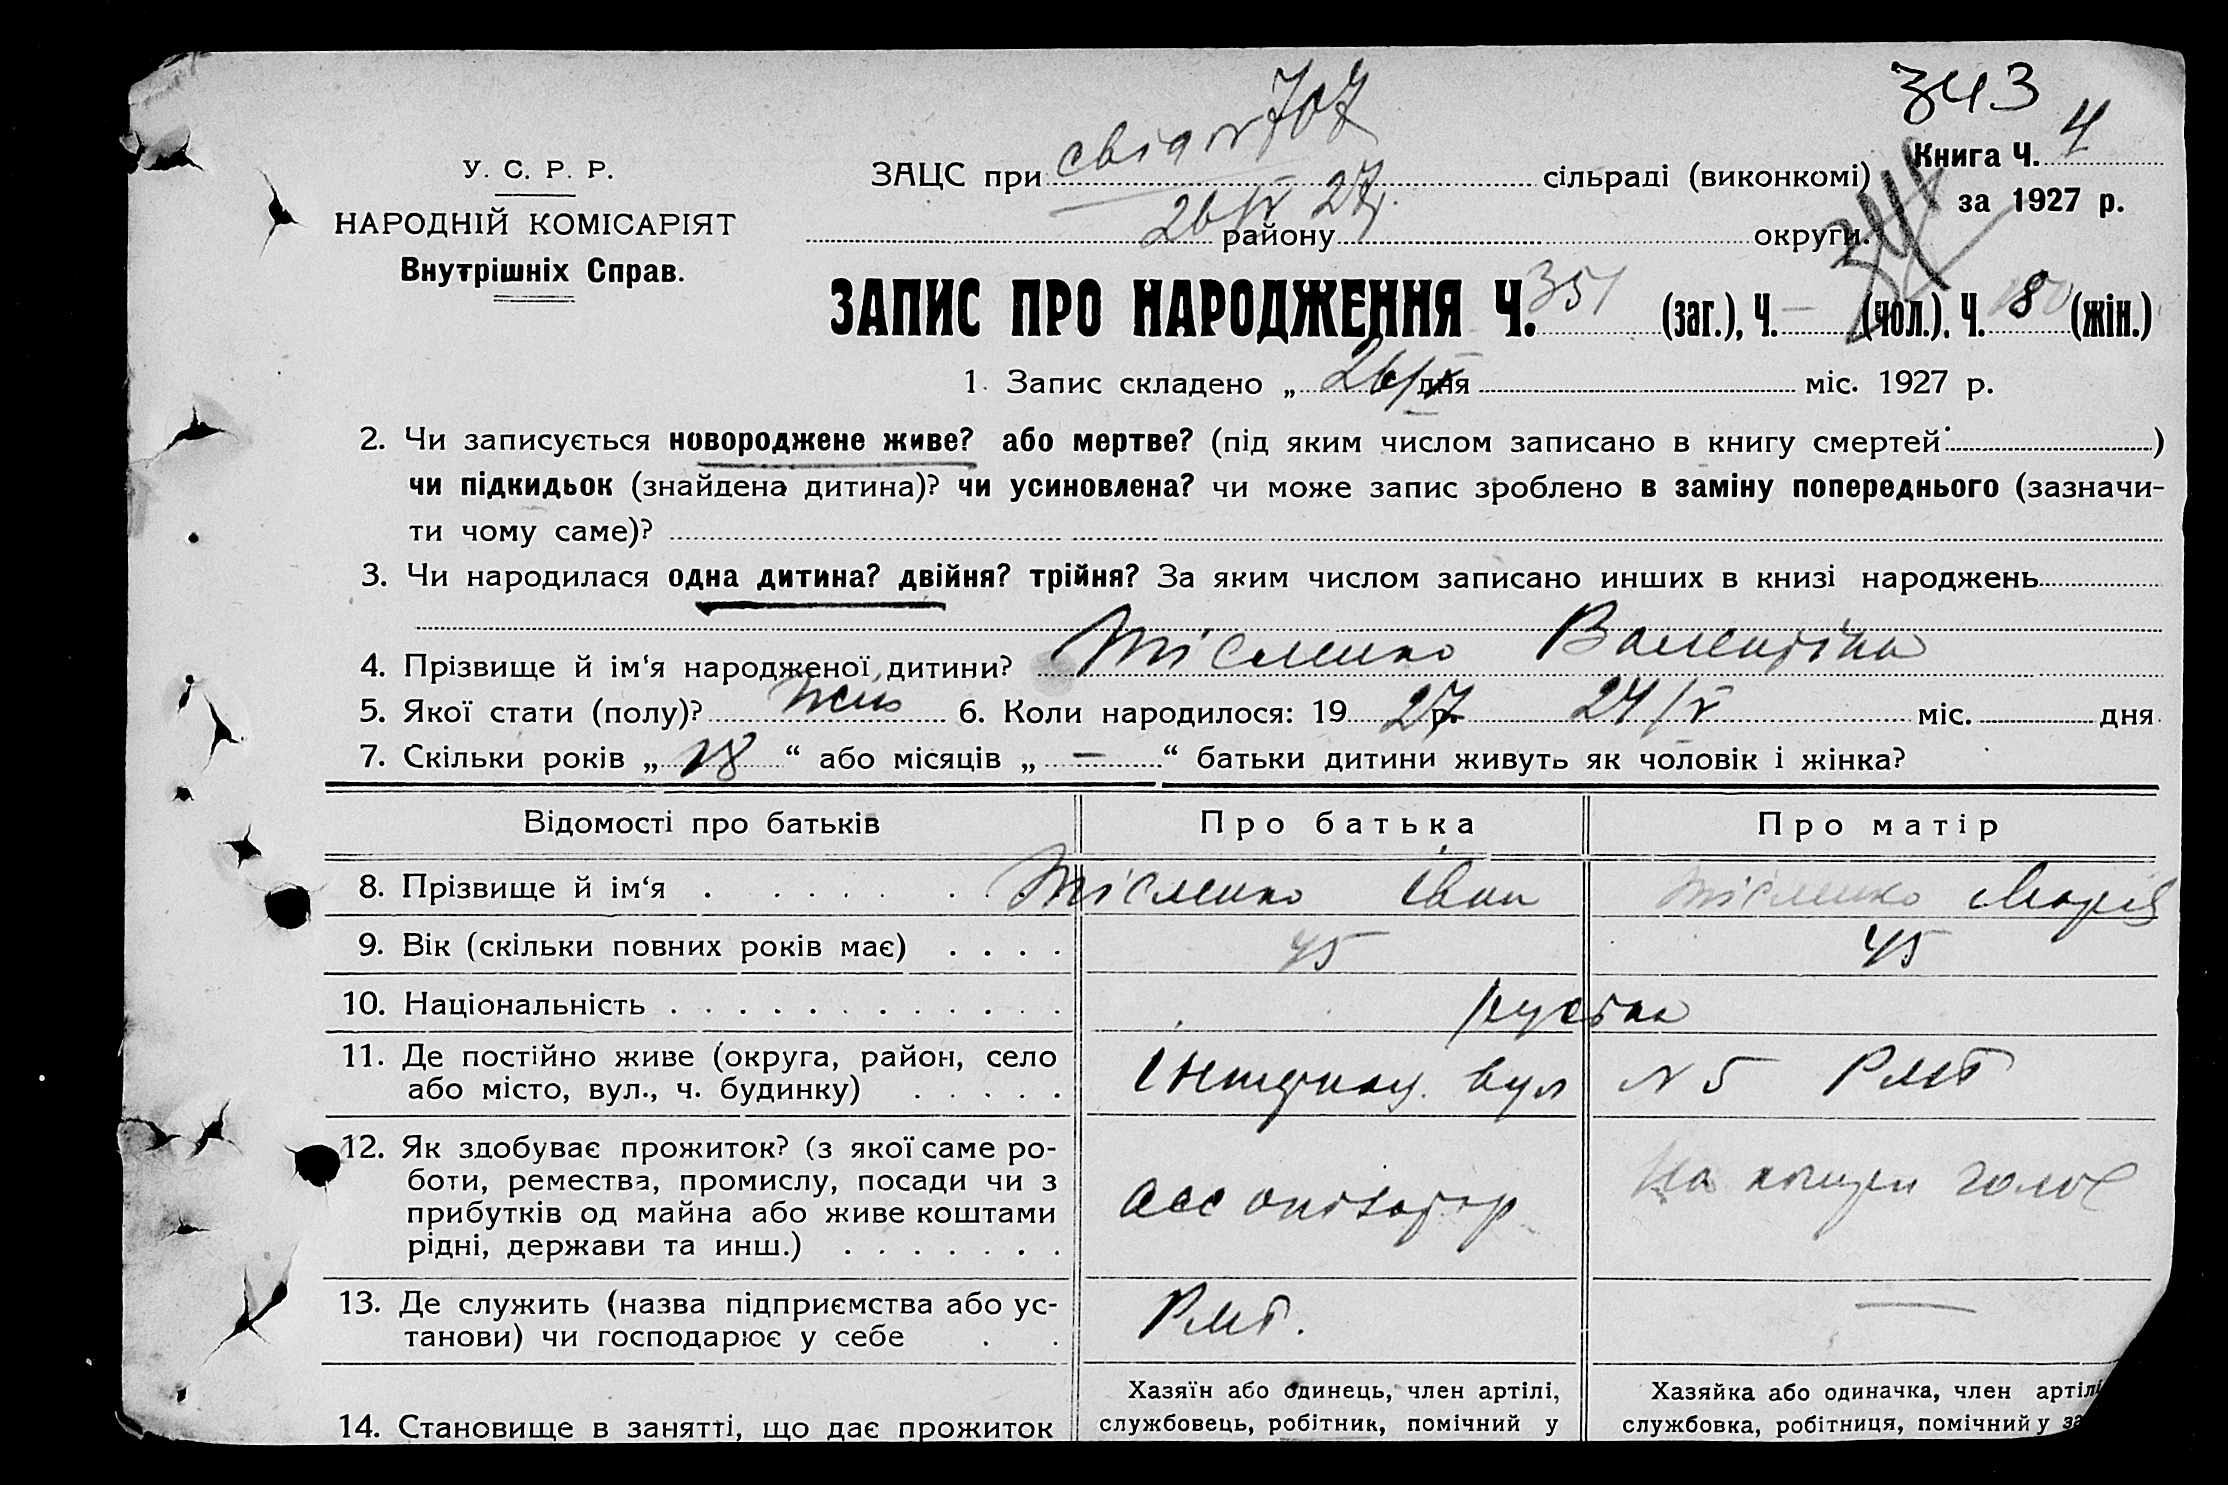 343
свід N 707
У. С. Р. Р.
ЗАЦС при сільраді (виконкомі)
Книга Ч. 4
за 1927 р.
НАРОДНІЙ КОМІСАРІЯТ
26/V 27 р.
району округи.
344
Внутрішніх Справ.
ЗАПИС ПРО НАРОДЖЕННЯ Ч. 351 (заг.), Ч. — (чол.). Ч. (жін.)
1. Запис складено „ 26/V дня міс. 1927 р.
2. Чи записується новороджене живе? або мертве? (під яким числом записано в книгу смертей )
чи підкидьок (знайдена дитина)? чи усиновлена? чи може запис зроблено в заміну попереднього (зазначи-
ти чому саме)?
3. Чи народилася одна дитина? двійня? трійня? За яким числом записано инших в книзі народжень
4. Прізвище й ім‘я народженої дитини? Тісленко Валентіна
5. Якої стати (полу)? жін 6. Коли народилося: 19 27 р. 24/V міс. дня
7. Скільки років „ 18 “ або місяців „ — “ батьки дитини живуть як чоловік і жінка?
Відомості про батьків Про батька Про матір
8. Прізвище й ім‘я Тісленко Іван Тісленко Марія
9. Вік (скільки повних років має) 45 45
10. Національність руські
11. Де постійно живе (округа, район, село
або місто, вул., ч. будинку) вул N 5 РМТ
12. Як здобуває прожиток? (з якої саме ро-
боти, ремества, промислу, посади чи з
прибутків од майна або живе коштами
рідні, держави та инш.)
На кошти голов
13. Де служить (назва підприємства або ус-
танови) чи господарює у себе РМТ. —
Хазяїн або одинець, член артілі, Хазяйка або одиначка, член артілі
14. Становище в занятті, що дає прожиток службовець, робітник, помічний у службовка, робітниця, помічний у за